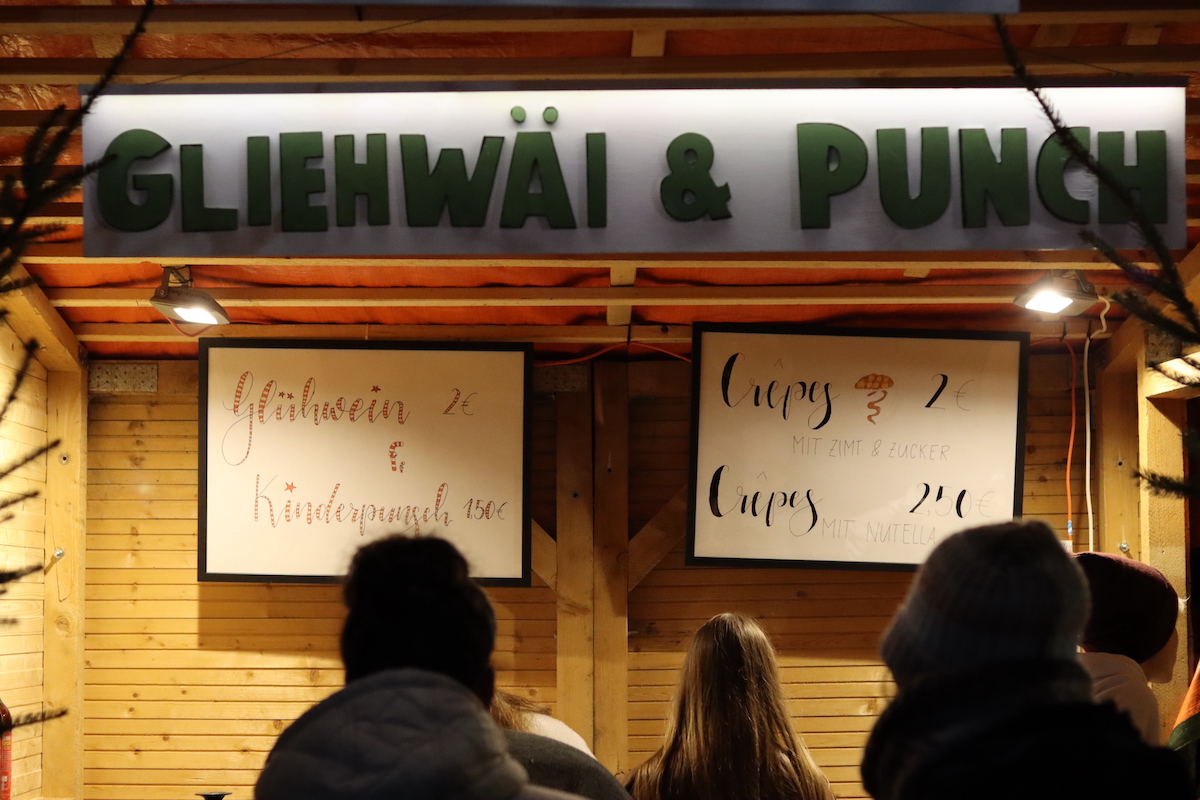 GLIEHWÄI & PUNCH
Glühwein 2€
&
Kinderpunsch 1,50€
Crêpes 2€
MIT ZIMT & ZUCKER
Crêpes 2,50€
MIT NUTELLA